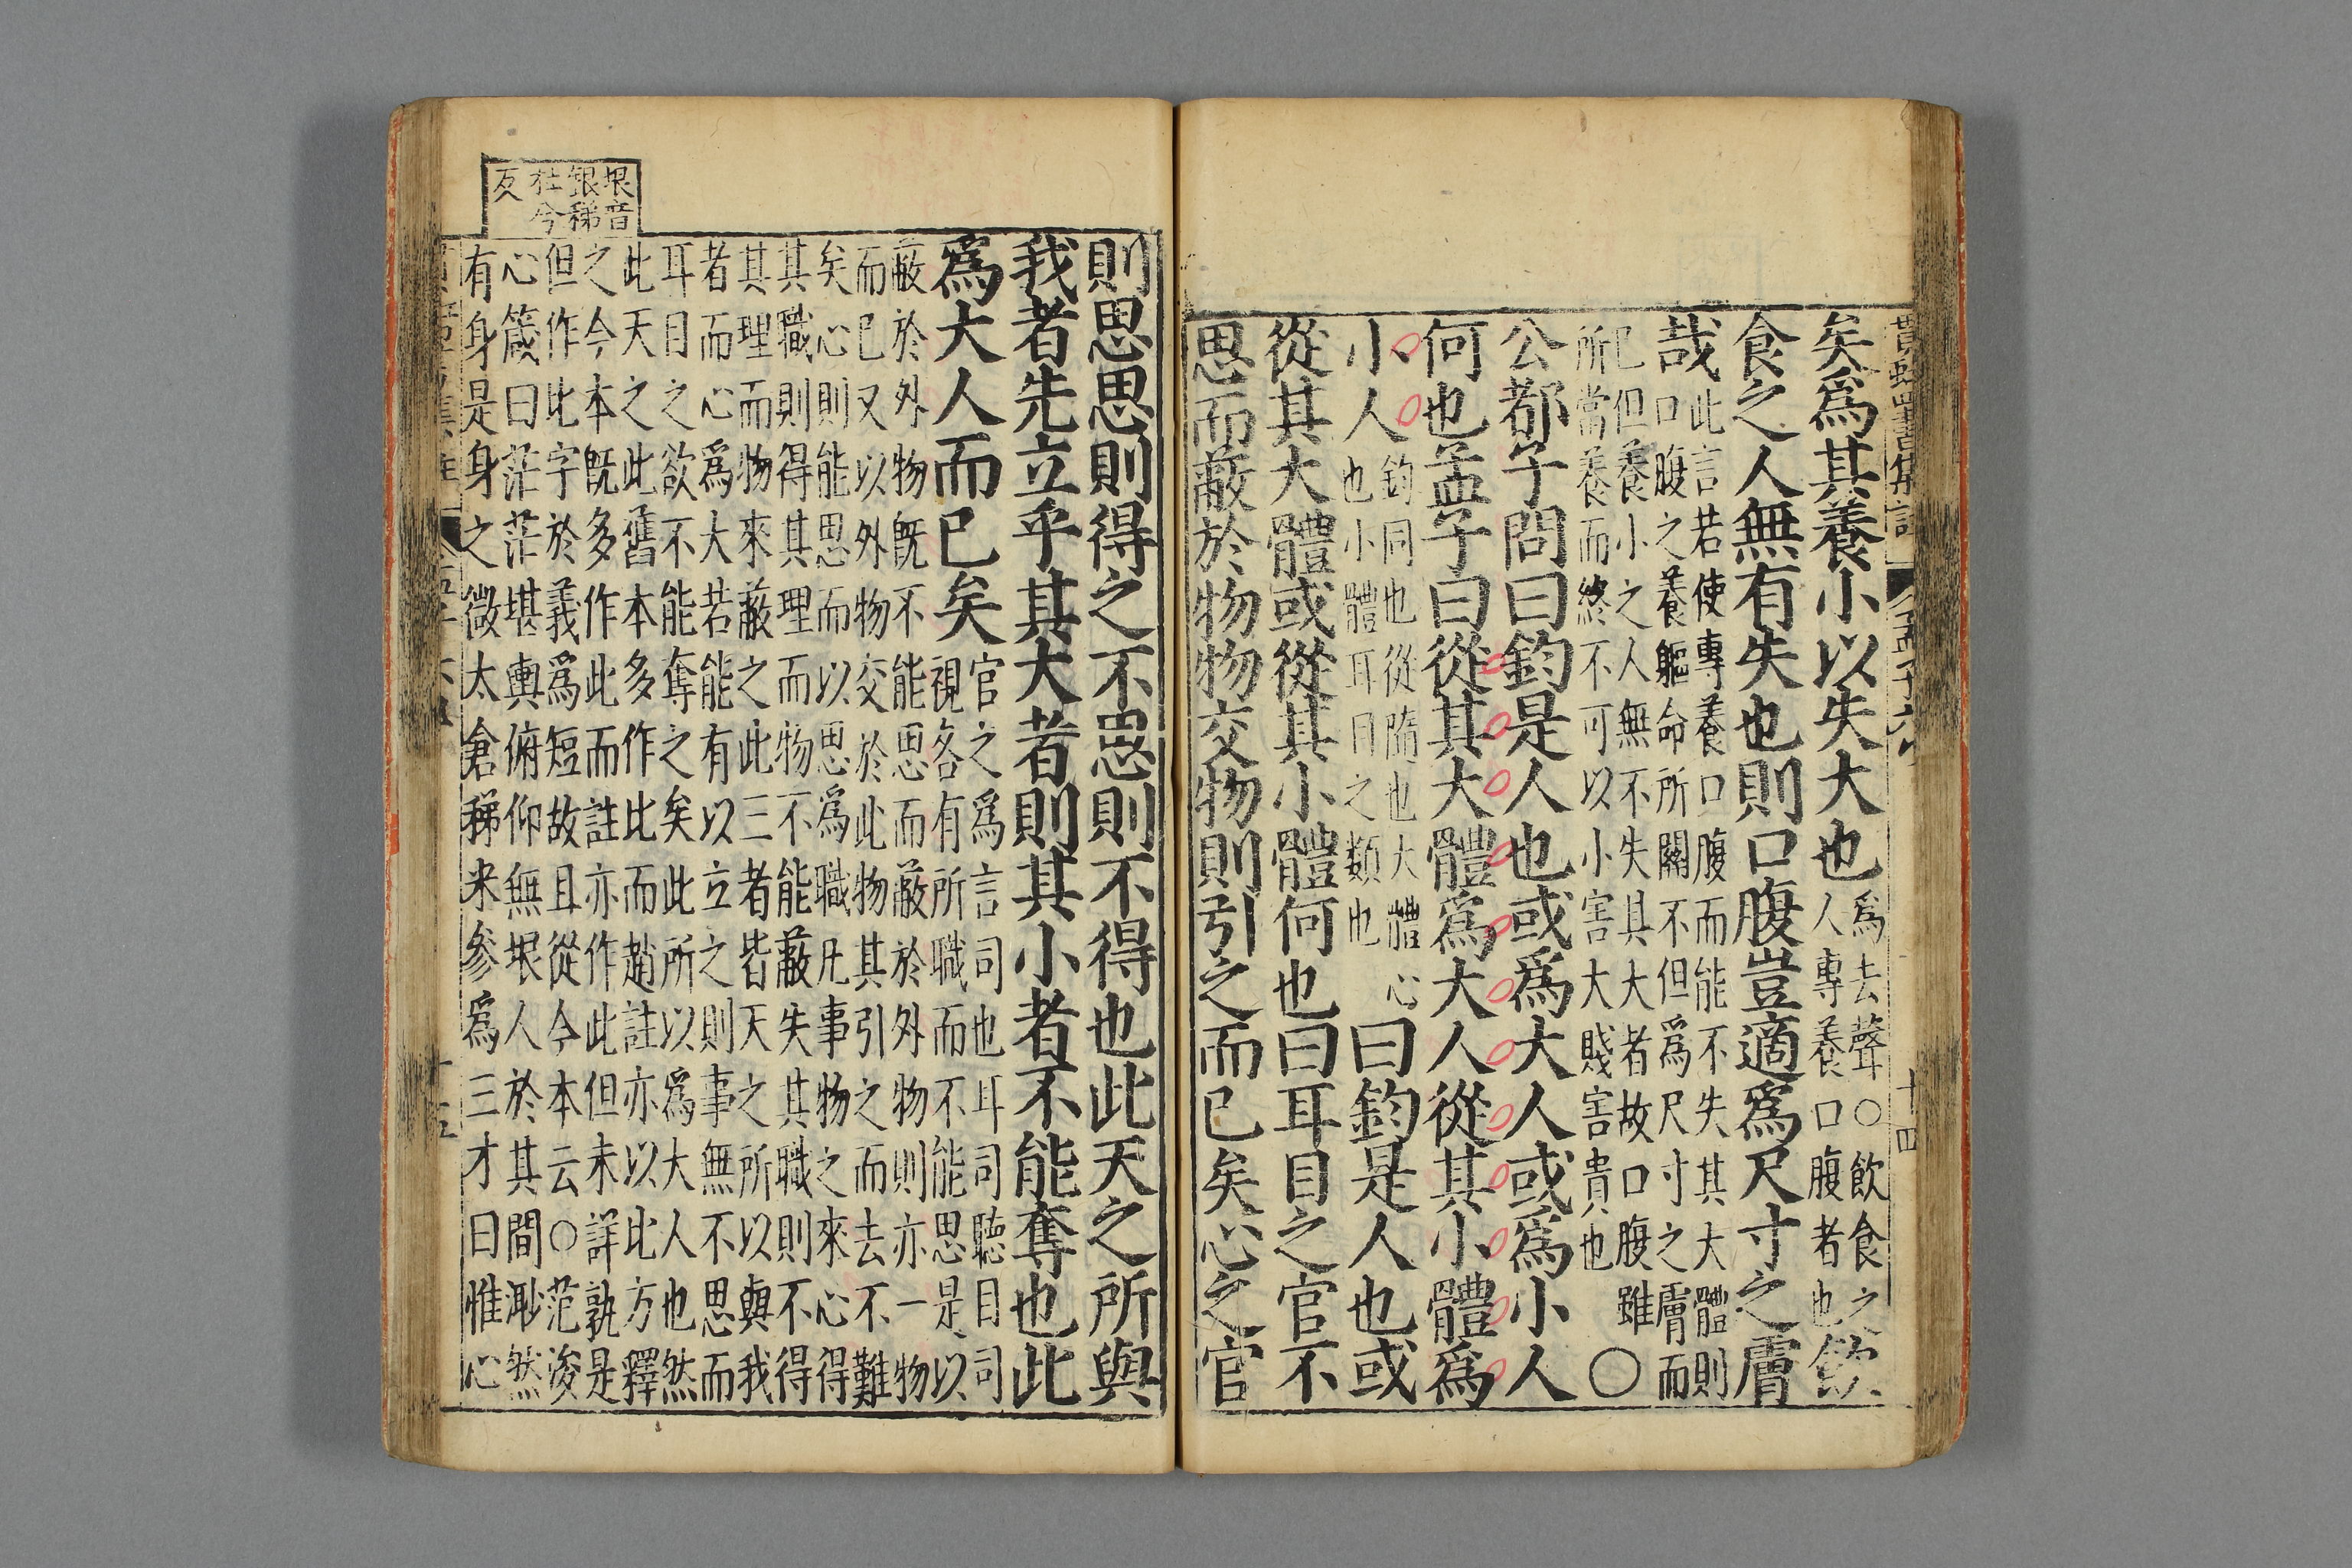 四書集註 孟子六 十四
矣爲其養小以失大也
爲去聲○飲食之
人專養口腹者也
飲
食之人無有失也則口腹豈適爲尺寸之膚
哉
此言若使專養口腹而能不失其大體則
口腹之養軀命所關不但爲尺寸之膚而
已但養小之人無不失其大者故口腹雖
所當養而終不可以小害大賤害貴也
○
公都子問曰鈞是人也或爲大人或爲小人
何也孟子曰從其大體爲大人從其小體爲
小人
鈞同也從隨也大體心
也小體耳目之類也
曰鈞是人也或
從其大體或從其小體何也曰耳目之官不
思而蔽於物物交物則引之而已矣心之官
則思思則得之不思則不得也此天之所與
我者先立乎其大者則其小者不能奪也此
爲大人而已矣
官之爲言司也耳司聽目司
視各有所職而不能思是以
蔽於外物旣不能思而蔽於外物則亦一物
而已又以外物交於此物其引之而去不難
矣心則能思而以思爲職凡事物之來心得
其職則得其理而物不能蔽失其職則不得
其理而物來蔽之此三者皆天之所以與我
者而心爲大若能有以立之則事無不思而
耳目之欲不能奪之矣此所以爲大人也然
此天之此舊本多作比而趙註亦以比方釋
之今本旣多作此而註亦作此但未詳孰是
但作此字於義爲短故且從今本云○范浚
心箴曰茫茫堪輿俯仰無垠人於其間渺然
有身是身之微太倉稊米參爲三才曰惟心
垠音
銀稊
杜兮
反